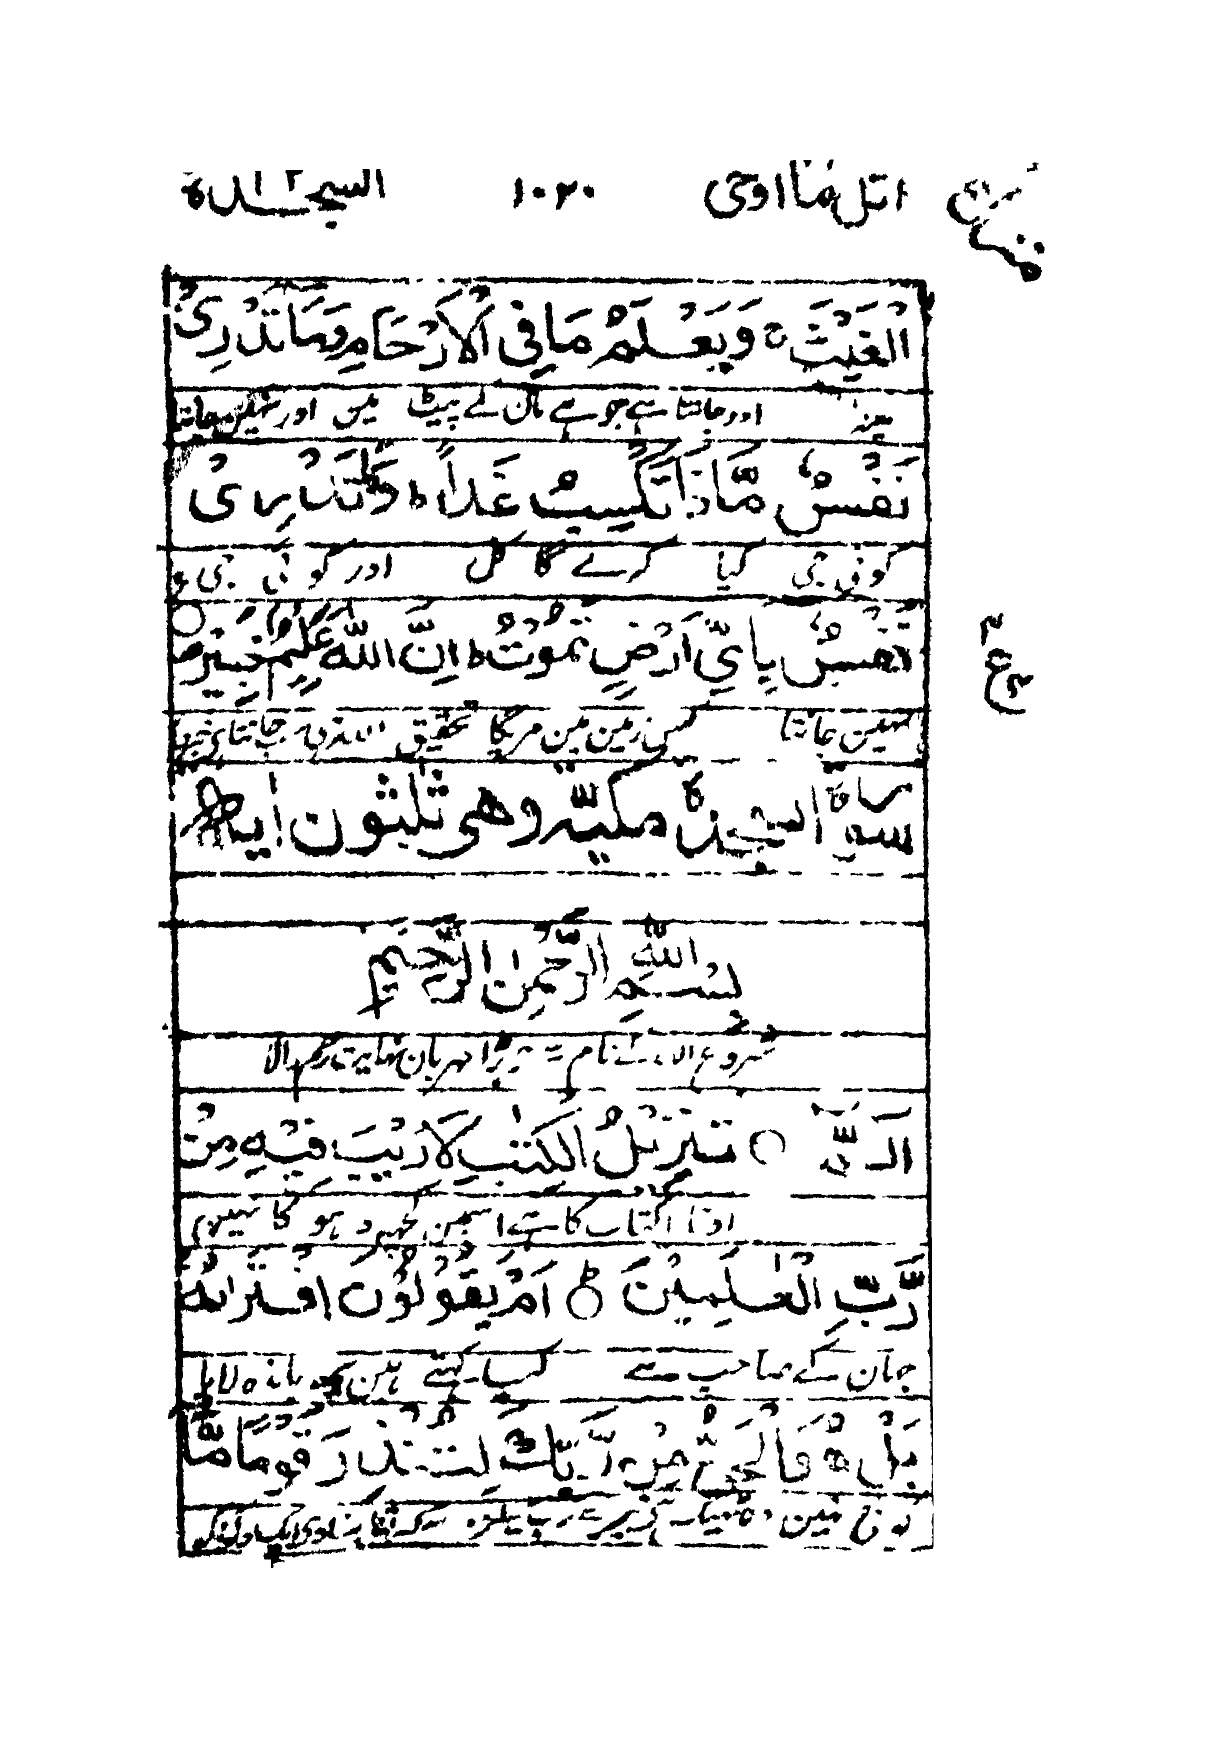 اتل ما اوحی ۱۰۲۰ السجدة
الْغَيْثَ ۚ وَيَعْلَمُ مَا فِي الْاَرْحَامِ وَمَا تَدْرِيْ
اور جانتا ہے جو ہے مان کے پیٹ میں اور نہین جانتا
نَفْسٌ مَّاذَا تَكْسِبُ غَدًا ؕ وَمَا تَدْرِيْ
کوئی جی کیا کرے گا کل اور کوئی جی
نَفْسٌۢ بِاَيِّ اَرْضٍ تَمُوْتُ ؕ اِنَّ اللّٰهَ عَلِيْمٌ خَبِيْرٌ
۳
ع
نہین جانتا کس زمین مین مریگا تحقیق اللہ ہی جانتا ہی خبر
سورة السجدة مكية وهي ثلثون اية
بسم الله الرحمن الرحيم
شروع اللہ کے نام سے جو بڑا مہربان نہایت رحم والا
الٓمّٓ ۚ تَنْزِيْلُ الْكِتٰبِ لَا رَيْبَ فِيْهِ مِنْ
اتارنا کتاب کا ہے اس مین کچھ دہوکا نہین
رَّبِّ الْعٰلَمِيْنَ ؕ اَمْ يَقُوْلُوْنَ افْتَرٰىهُ
جہان کے صاحب سے کیا کہتے ہین یہ باندہ لایا
بَلْ هُوَ الْحَقُّ مِنْ رَّبِّكَ لِتُنْذِرَ قَوْمًا مَّا
کوئی نہین وہ ٹھیک ہے تیرے رب کی طرف سے کہ